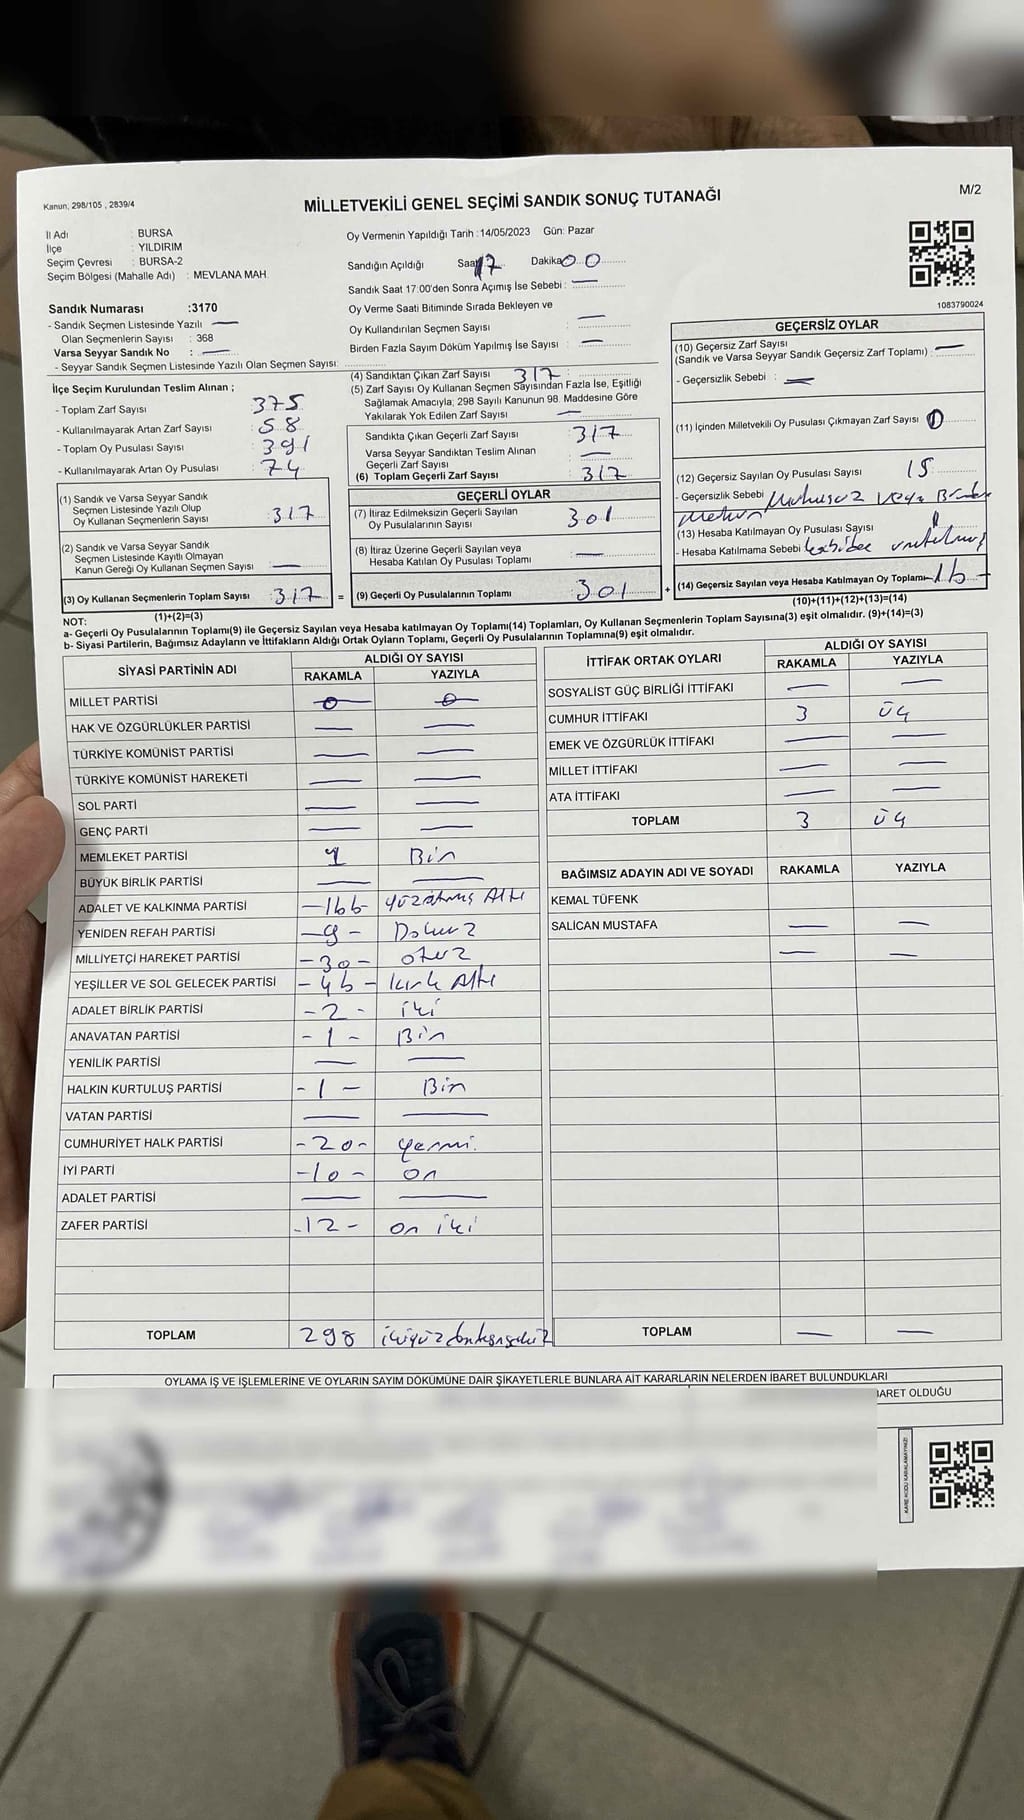 Kanun, 298/105 , 2839/4
MİLLETVEKİLİ GENEL SEÇİMİ SANDIK SONUÇ TUTANAĞI
M/2
İl Adı : BURSA
İlçe : YILDIRIM
Seçim Çevresi : BURSA-2
Seçim Bölgesi (Mahalle Adı) : MEVLANA MAH.
Oy Vermenin Yapıldığı Tarih :14/05/2023 Gün: Pazar
Sandığın Açıldığı Saat 17 Dakika 00
Sandık Saat 17:00'den Sonra Açımış İse Sebebi : —
Oy Verme Saati Bitiminde Sırada Bekleyen ve
Oy Kullandırılan Seçmen Sayısı : —
Birden Fazla Sayım Döküm Yapılmış İse Sayısı : —
1083790024
Sandık Numarası :3170
- Sandık Seçmen Listesinde Yazılı —
Olan Seçmenlerin Sayısı : 368
Varsa Seyyar Sandık No : —
- Seyyar Sandık Seçmen Listesinde Yazılı Olan Seçmen Sayısı:
İlçe Seçim Kurulundan Teslim Alınan ;
- Toplam Zarf Sayısı 375
- Kullanılmayarak Artan Zarf Sayısı : 58
- Toplam Oy Pusulası Sayısı : 391
- Kullanılmayarak Artan Oy Pusulası : 74
(1) Sandık ve Varsa Seyyar Sandık
Seçmen Listesinde Yazılı Olup
Oy Kullanan Seçmenlerin Sayısı : 317
(2) Sandık ve Varsa Seyyar Sandık
Seçmen Listesinde Kayıtlı Olmayan
Kanun Gereği Oy Kullanan Seçmen Sayısı : —
(3) Oy Kullanan Seçmenlerin Toplam Sayısı : 317 =
(1)+(2)=(3)
(4) Sandıktan Çıkan Zarf Sayısı : 317
(5) Zarf Sayısı Oy Kullanan Seçmen Sayısından Fazla İse, Eşitliği
Sağlamak Amacıyla, 298 Sayılı Kanunun 98. Maddesine Göre
Yakılarak Yok Edilen Zarf Sayısı : —
Sandıkta Çıkan Geçerli Zarf Sayısı : 317
Varsa Seyyar Sandıktan Teslim Alınan
Geçerli Zarf Sayısı : —
(6) Toplam Geçerli Zarf Sayısı : 317
GEÇERLİ OYLAR
(7) İtiraz Edilmeksizin Geçerli Sayılan
Oy Pusulalarının Sayısı : 301
(8) İtiraz Üzerine Geçerli Sayılan veya
Hesaba Katılan Oy Pusulası Toplamı : —
(9) Geçerli Oy Pusulalarının Toplamı : 301 +
GEÇERSİZ OYLAR
(10) Geçersiz Zarf Sayısı
(Sandık ve Varsa Seyyar Sandık Geçersiz Zarf Toplamı) : —
- Geçersizlik Sebebi : —
(11) İçinden Milletvekili Oy Pusulası Çıkmayan Zarf Sayısı
(12) Geçersiz Sayılan Oy Pusulası Sayısı : 15
- Geçersizlik Sebebi Mühürsüz veya Birden
(13) Hesaba Katılmayan Oy Pusulası Sayısı
- Hesaba Katılmama Sebebi
(14) Geçersiz Sayılan veya Hesaba Katılmayan Oy Toplamı 16
(10)+(11)+(12)+(13)=(14)
NOT:
a- Geçerli Oy Pusulalarının Toplamı(9) ile Geçersiz Sayılan veya Hesaba katılmayan Oy Toplamı(14) Toplamları, Oy Kullanan Seçmenlerin Toplam Sayısına(3) eşit olmalıdır. (9)+(14)=(3)
b- Siyasi Partilerin, Bağımsız Adayların ve İttifakların Aldığı Ortak Oyların Toplamı, Geçerli Oy Pusulalarının Toplamına(9) eşit olmalıdır.
SİYASİ PARTİNİN ADI ALDIĞI OY SAYISI
RAKAMLA YAZIYLA
MİLLET PARTİSİ 0 0
HAK VE ÖZGÜRLÜKLER PARTİSİ — —
TÜRKİYE KOMÜNİST PARTİSİ — —
TÜRKİYE KOMÜNİST HAREKETİ — —
SOL PARTİ — —
GENÇ PARTİ — —
MEMLEKET PARTİSİ 1 Bir
BÜYÜK BİRLİK PARTİSİ — —
ADALET VE KALKINMA PARTİSİ —166- yüzatmış Altı
YENİDEN REFAH PARTİSİ —9- Dokuz
MİLLİYETÇİ HAREKET PARTİSİ -30- otuz
YEŞİLLER VE SOL GELECEK PARTİSİ -46- kırk Altı
ADALET BİRLİK PARTİSİ -2- iki
ANAVATAN PARTİSİ -1- Bir
YENİLİK PARTİSİ — —
HALKIN KURTULUŞ PARTİSİ -1- Bir
VATAN PARTİSİ — —
CUMHURİYET HALK PARTİSİ -20- yirmi.
İYİ PARTİ -10- on
ADALET PARTİSİ — —
ZAFER PARTİSİ -12- on iki
TOPLAM 298 ikiyüzdoksansekiz
İTTİFAK ORTAK OYLARI ALDIĞI OY SAYISI
RAKAMLA YAZIYLA
SOSYALİST GÜÇ BİRLİĞİ İTTİFAKI — —
CUMHUR İTTİFAKI 3 üç
EMEK VE ÖZGÜRLÜK İTTİFAKI — —
MİLLET İTTİFAKI — —
ATA İTTİFAKI — —
TOPLAM 3 üç
BAĞIMSIZ ADAYIN ADI VE SOYADI RAKAMLA YAZIYLA
KEMAL TÜFENK
SALİCAN MUSTAFA — —
— —
TOPLAM — —
OYLAMA İŞ VE İŞLEMLERİNE VE OYLARIN SAYIM DÖKÜMÜNE DAİR ŞİKAYETLERLE BUNLARA AİT KARARLARIN NELERDEN İBARET BULUNDUKLARI
BARET OLDUĞU
KARE KODU KARALAMAYINIZ!